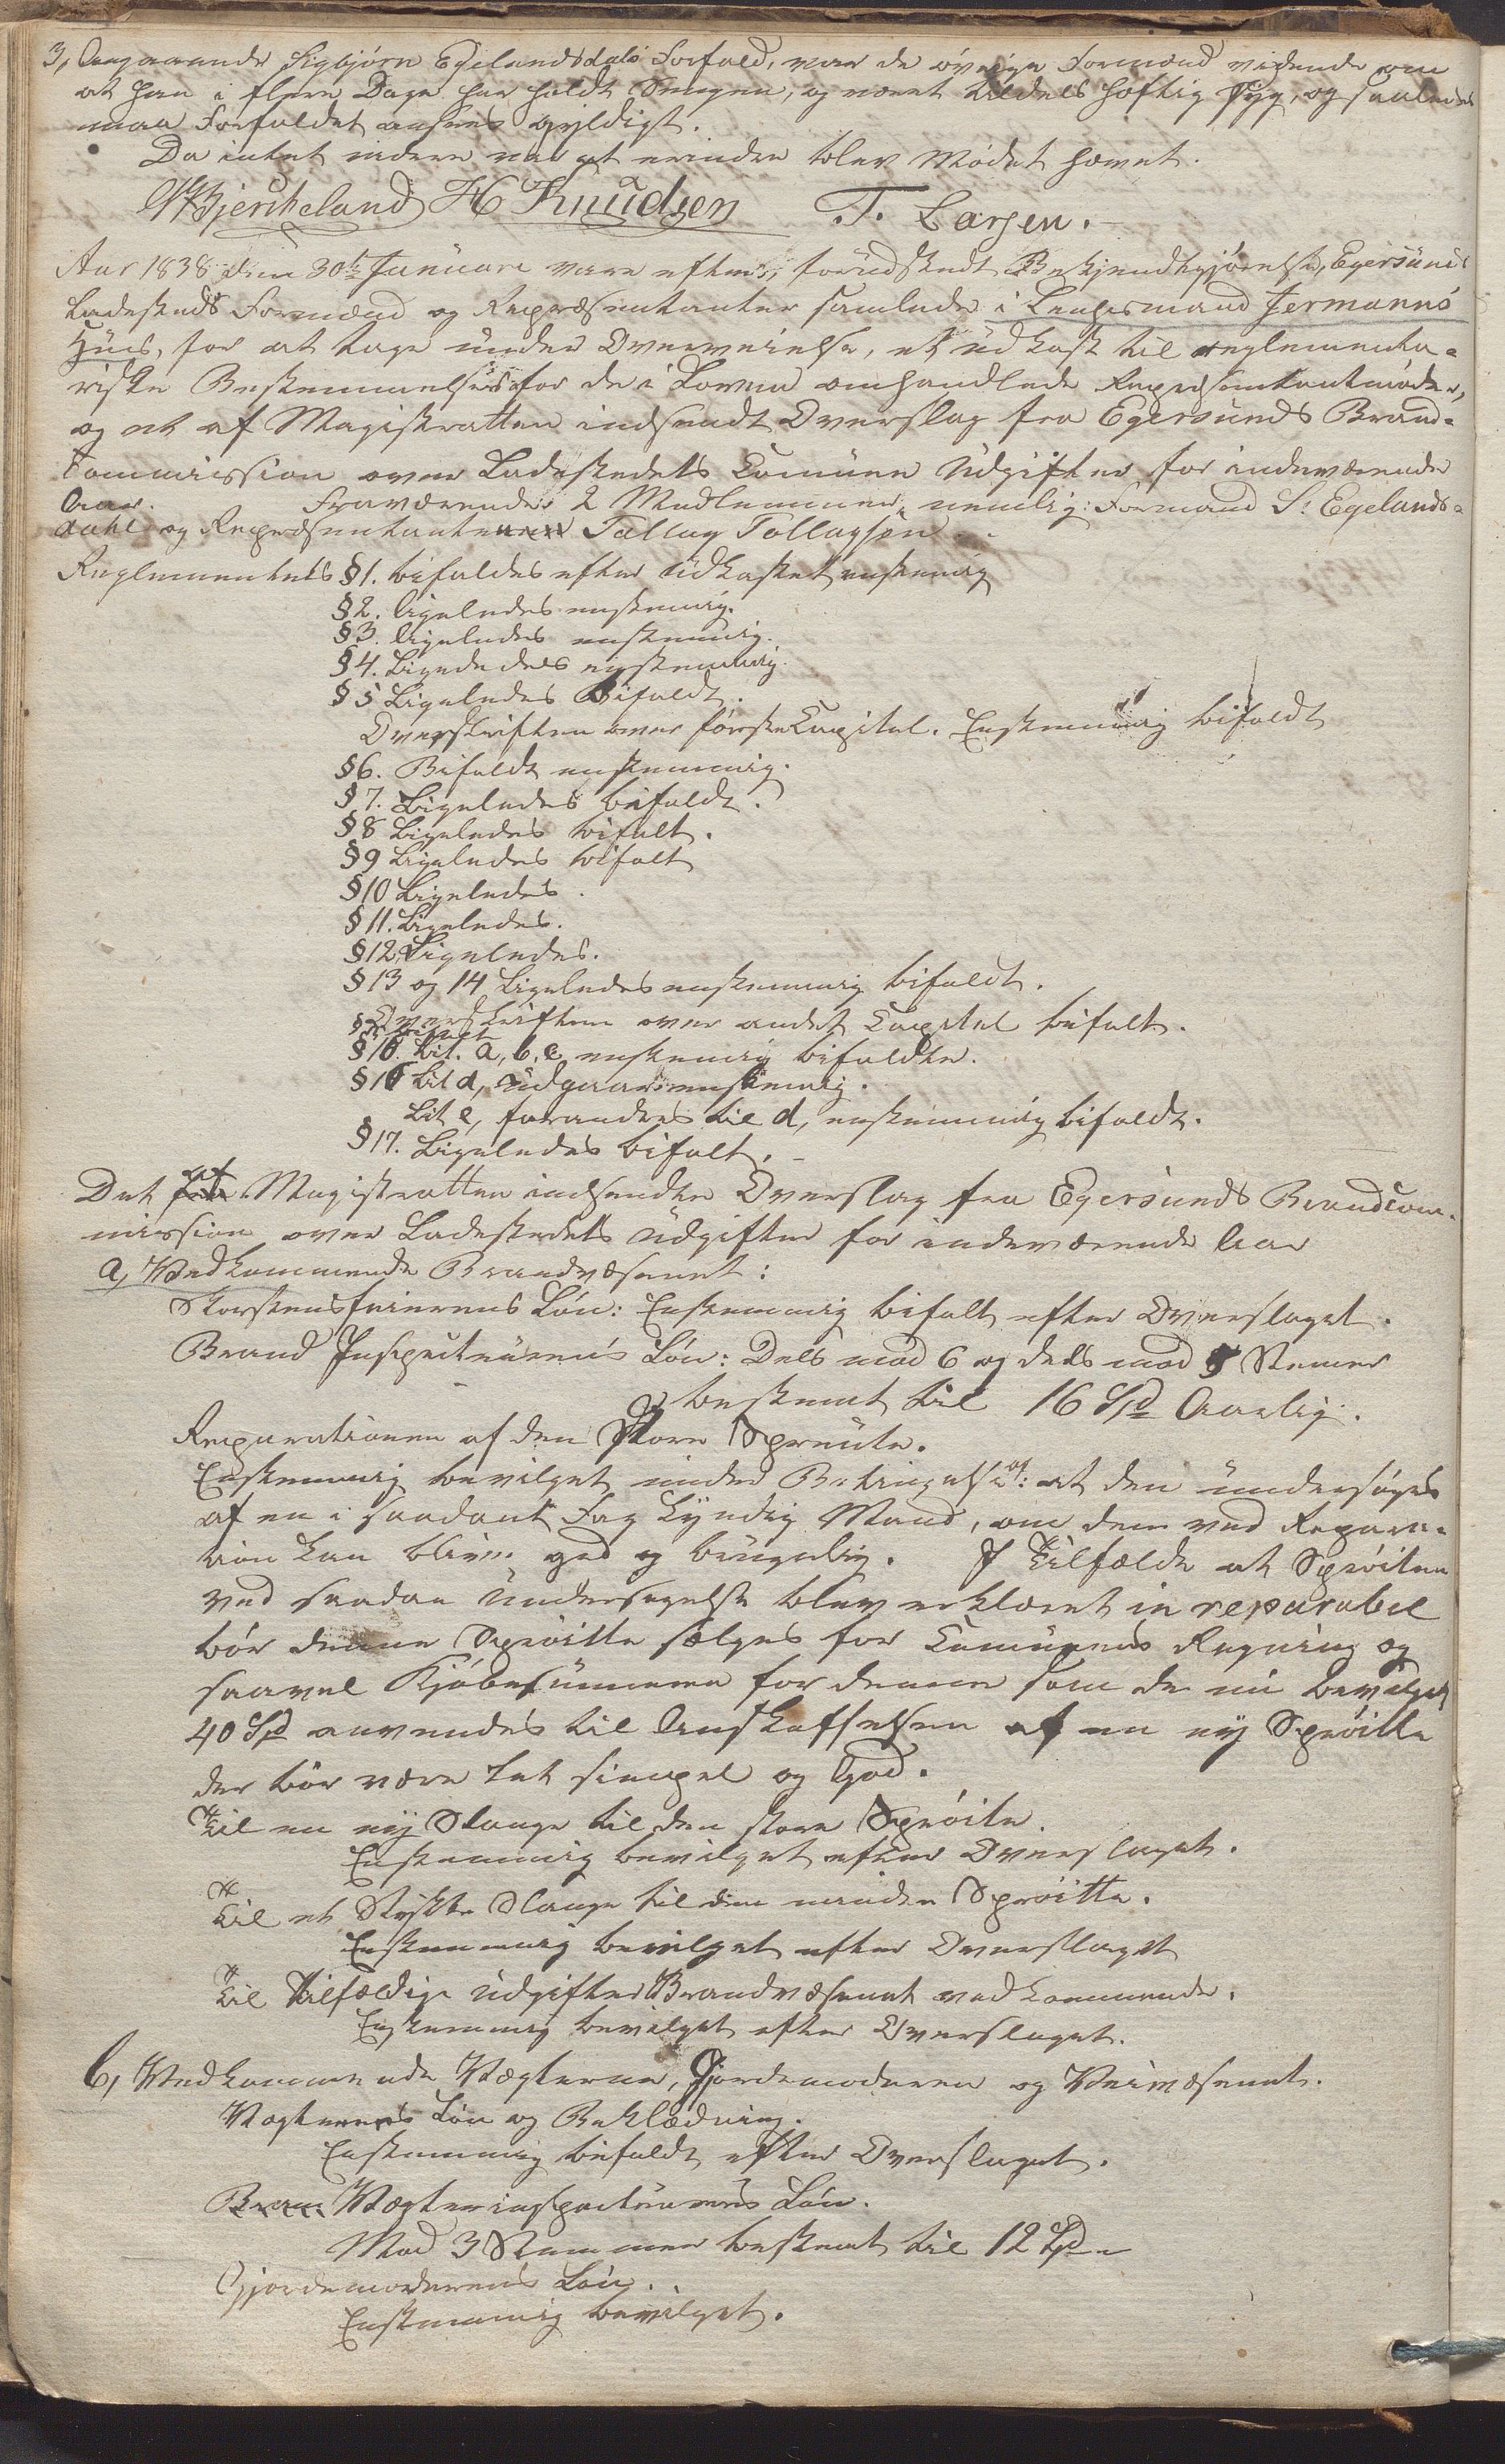 3, Angaaende Sigbjørn Egelandsdals Forfald, var de øvrige Formænd vidende om
at han i flere Dage har holdt Sengen, og været tildeels heftig syg, og saaledes
maa Forfaldet ansees gyldigt.
Da intet videre var at erindre blev Mødet hævet.
Bjerkeland H Knudsen T. Larsen.
Aar 1838 den 30te Januari vare efter forudskedt Bekjendtgjørelse, Egersunds
Ladesteds Formænd og Repræsentanter samlede i Lensmand Jermanns
Huus, for at tage under Overveielse, et udkast til reglementa-
riske Bestemmelser for de i Loven omhandlede Repræsentantmøder,
og et af Magistratten indsendt Overslag fra Egersunds Brand-
Commission over Ladestedets Comune Udgifter for indeværende
Aar. Fraværende 2 Medlemmer, nemlig: Formand S. Egelands-
dahl og Repræsentanten Tallag Tollagsen.
Reglementets § 1. bifaldes efter udkastet enstemig
§ 2. ligeledes enstemig.
§ 3. ligeledes enstemmig.
§ 4. Ligeledes enstemmig.
§ 5 Ligeledes Bifaldt.
Overskriften over første Capitel. Enstemmig bifaldt
§ 6. Bifaldt enstemmig.
§ 7. Ligeledes bifaldt.
§ 8 Ligeledes bifalt.
§ 9 Ligeledes bifalt
§ 10 Ligeledes.
§ 11. Ligeledes.
§ 12 Ligeledes.
§ 13 og 14 Ligeledes enstemmig bifaldt.
Overskriften over andet Capitel bifalt.
§ 16. Lit. a, b, c enstemig bifaldte.
§ 16 Lit d, udgaar enstemig.
Lit e, forandres til d, enstemmig bifaldt.
§ 17. Ligeledes bifalt.
Det af Magistratten indsendte Overslag fra Egersunds Brandcom-
mission over Ladestedets Udgifter for indeværende Aar
a, Vedkommende Brandvæsenet:
Skorsteensfeierens Løn: Enstemmig bifalt efter Overslaget.
Brand Inspecteurens Løn: Dels mod 6 og dels mod 5 Stemer
bestemt til 16 Spd Aarlig.
Reparationen af den Store Sprøite.
Enstemmig bevilget under Betingelse af: at den undersøges
af en i saadant Fag kyndig Mand, om den ved Repara-
tion kan blive god og brugelig. I Tilfælde at Sprøiten
ved saadan Undersøgelse blev erklæret in reparabel
bør denne Sprøite sælges for Comunens Regning og
saavel Kjøbesummen for denne som de nu bevilget
40 Spd anvendes til Anskaffelsen af en ny Sprøite
der bør være tæt simpel og God.
Til en ny Slange til den store Sprøite.
Enstemmig bevilget efter Overslaget.
Til et Stykke Slange til den mindre Sprøitte.
Enstemmig bevilget efter Overslaget
Til tilfældige Udgifter Brandvæsenet vedkommende.
Enstemmig bevilget efter Overslaget.
b, Vedkommende Vægterne, Gjordemoderen og Veivæsenet.
Vægternes Løn og Beklædning.
Enstemmig bifaldt efter Overslaget.
Vægterinspecteurens Løn.
Mod 3 Stemmer bestemt til 12 Spd
Gjordemoderens Løn.
Enstemmig bevilget.